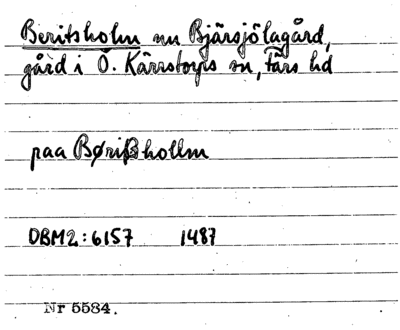 Beritsholm nu Bjärsjölagård,
gård i Ö. Kärrstorps sn, Färs hd
paa Børißhollm
DBM2:6157 1487
Nr 5584.